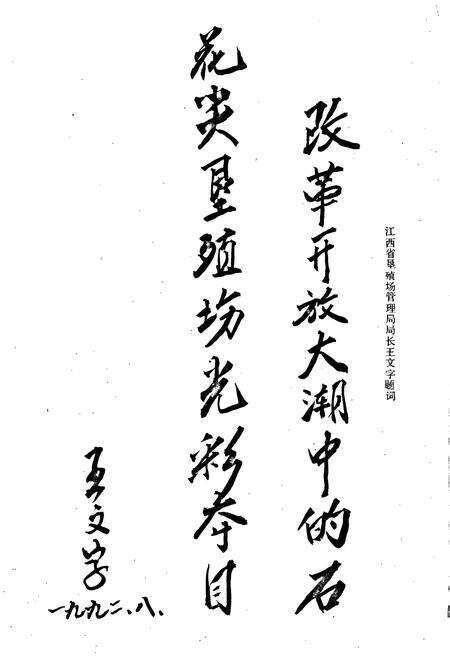 江西省垦殖场管理局局长王文字题词
改革开放大潮中的石
花尖垦殖场光彩夺目
王文字
一九九二、八、